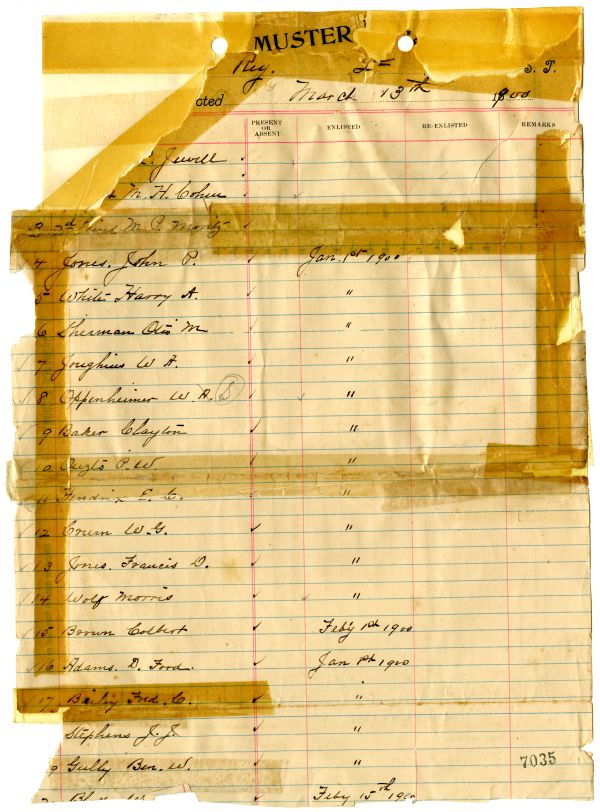 MUSTER
Reg. 2nd S. T.
cted March 13th 1900
PRESENT OR ABSENT ENLISTED RE-ENLISTED REMARKS
Jewell
M. H. Cohen
3 2d M. P. Moritz
4 Jones, John P. Jan. 1st 1900
5 White Harry A. "
6 Sherman Otis M "
7 Joughins W A. "
8 Oppenheimer W. A. S "
9 Baker Clayton "
10 P. W. "
11 Hendrix E. C. "
12 Crum W. G. "
13 Jones, Francis D. "
14 Wolf Morris "
15 Brown Colbert Feb'y 1st 1900
16 Adams. D. Ford. Jan 1st 1900
17 Baily Fred. C. "
Stephens J. J. "
9 Gully Ben. W. "
Feby 15th 1900
7035